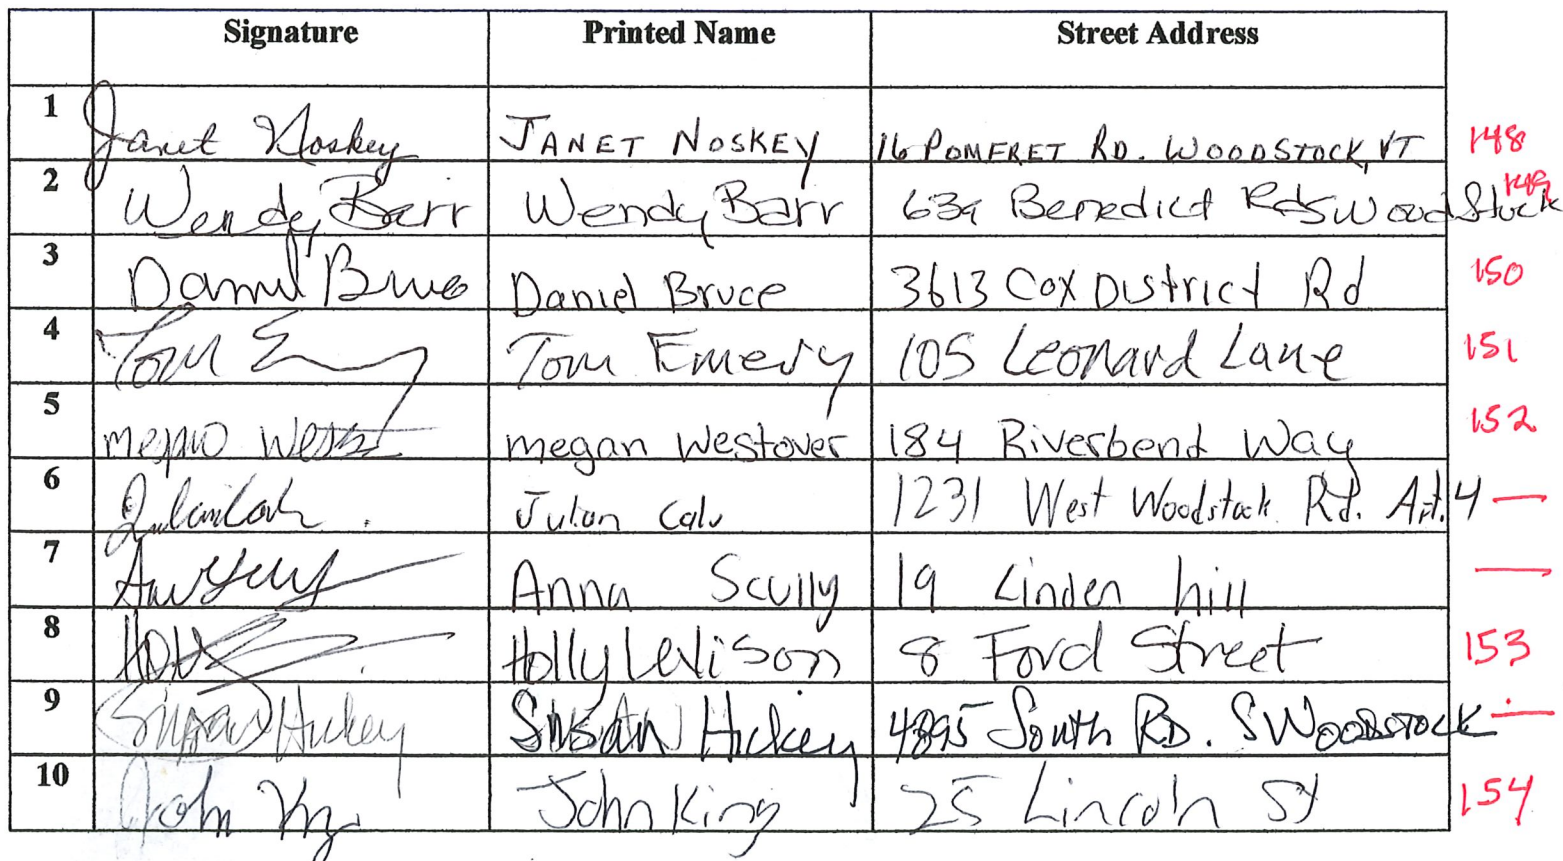 Signature Printed Name Street Address
1 Janet Noskey JANET NOSKEY 16 POMFRET RD. WOODSTOCK, VT 148
2 Wendy Barr Wendy Barr 639 Benedict Rd S Woodstock 149
3 Daniel Bruce Daniel Bruce 3613 Cox District Rd 150
4 Tom E Tom Emery 105 Leonard Lane 151
5 megan West megan Westover 184 Riverbend Way 152
6 1231 West Woodstock Rd. Apt. 4 —
7 Anna Scully 19 Linden hill —
8 Holly Levison 8 Ford Street 153
9 Susan Hickey SUSAN Hickey 4895 South RD. S WOODSTOCK —
10 John King John King 25 Lincoln St 154